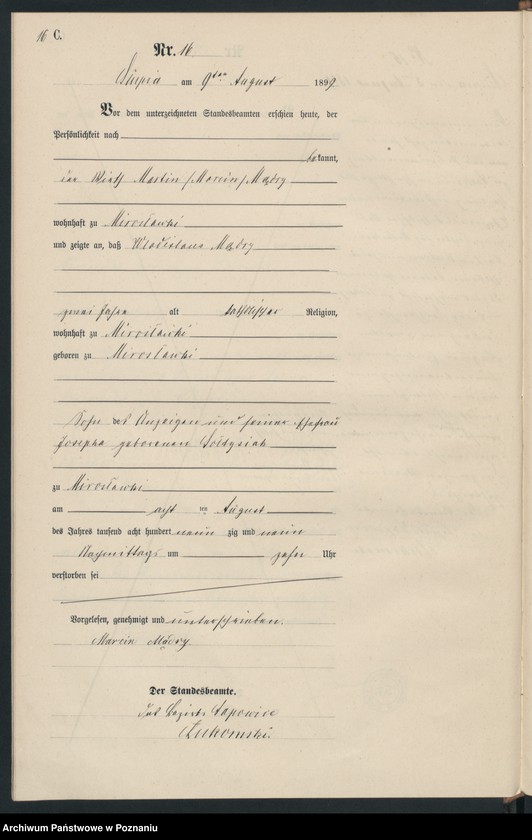 16 C.
Nr. 16
Słupia am 9ten August 1899
Vor dem unterzeichneten Standesbeamten erschien heute, der
Persönlichkeit nach
bekannt,
der Wirth Martin /Marcin/ Mądry
wohnhaft zu Mirosławki
und zeigte an, daß Wladislaus Mądry
zwei Jahre alt katholischer Religion,
wohnhaft zu Mirosławki
geboren zu Mirosławki
Sohn des Anzeigers und seiner Ehefrau
Josepha geborenen Sołtysiak
zu Mirosławki
am acht ten August
des Jahres tausend acht hundert neun zig und neun
Nachmittags um zehn Uhr
verstorben sei
Vorgelesen, genehmigt und unterschrieben.
Marcin Mądry
Der Standesbeamte.
Bezirks
Archiwum Państwowe w Poznaniu